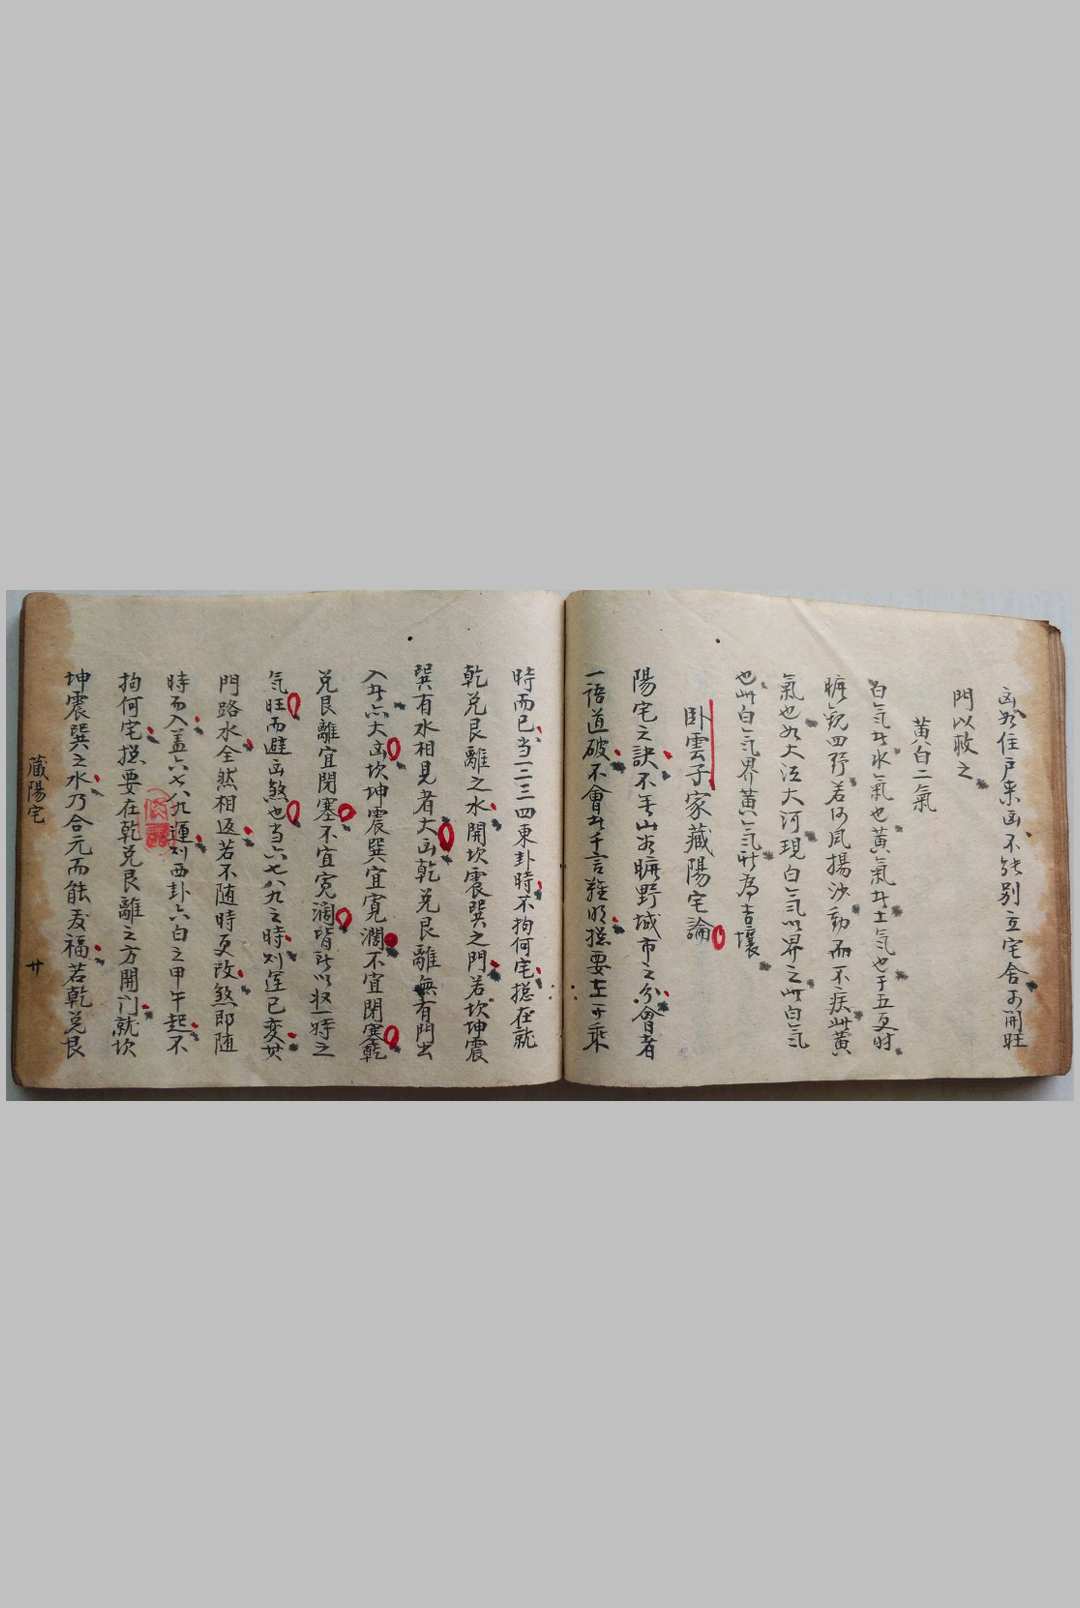 凶然住戶来凶不能别立宅舍可開旺
門以收之
黄白二氣
白气者水氣也黄氣者土气也于五更时
曠观四野若河风揚沙動而不疾此黄
氣也如大江大河現白气以界之此白气
也此白气界黄气所為吉壤
卧雲子家藏陽宅論
陽宅之訣不無山谷曠野城市之分會者
一语道破不會者千言難明揔要在乎乘
時而已当一二三四東卦時不拘何宅揔在就
乾兑艮離之水開坎震巽之門若坎坤震
巽有水相見者大凶乾兑艮離無有門出
入者亦大凶坎坤震巽宜寛濶不宜閉塞乾
兑艮離宜閉塞不宜寛濶皆所以収一時之
气旺而避凶煞也当六七八九之時則運已変其
門路水全然相返若不随時更改煞即随
時而入盖六七八九運則西卦六白之甲午起不
拘何宅揔要在乾兑艮離之方開门就坎
坤震巽之水乃合元而能发福若乾兑艮
藏陽宅 廿